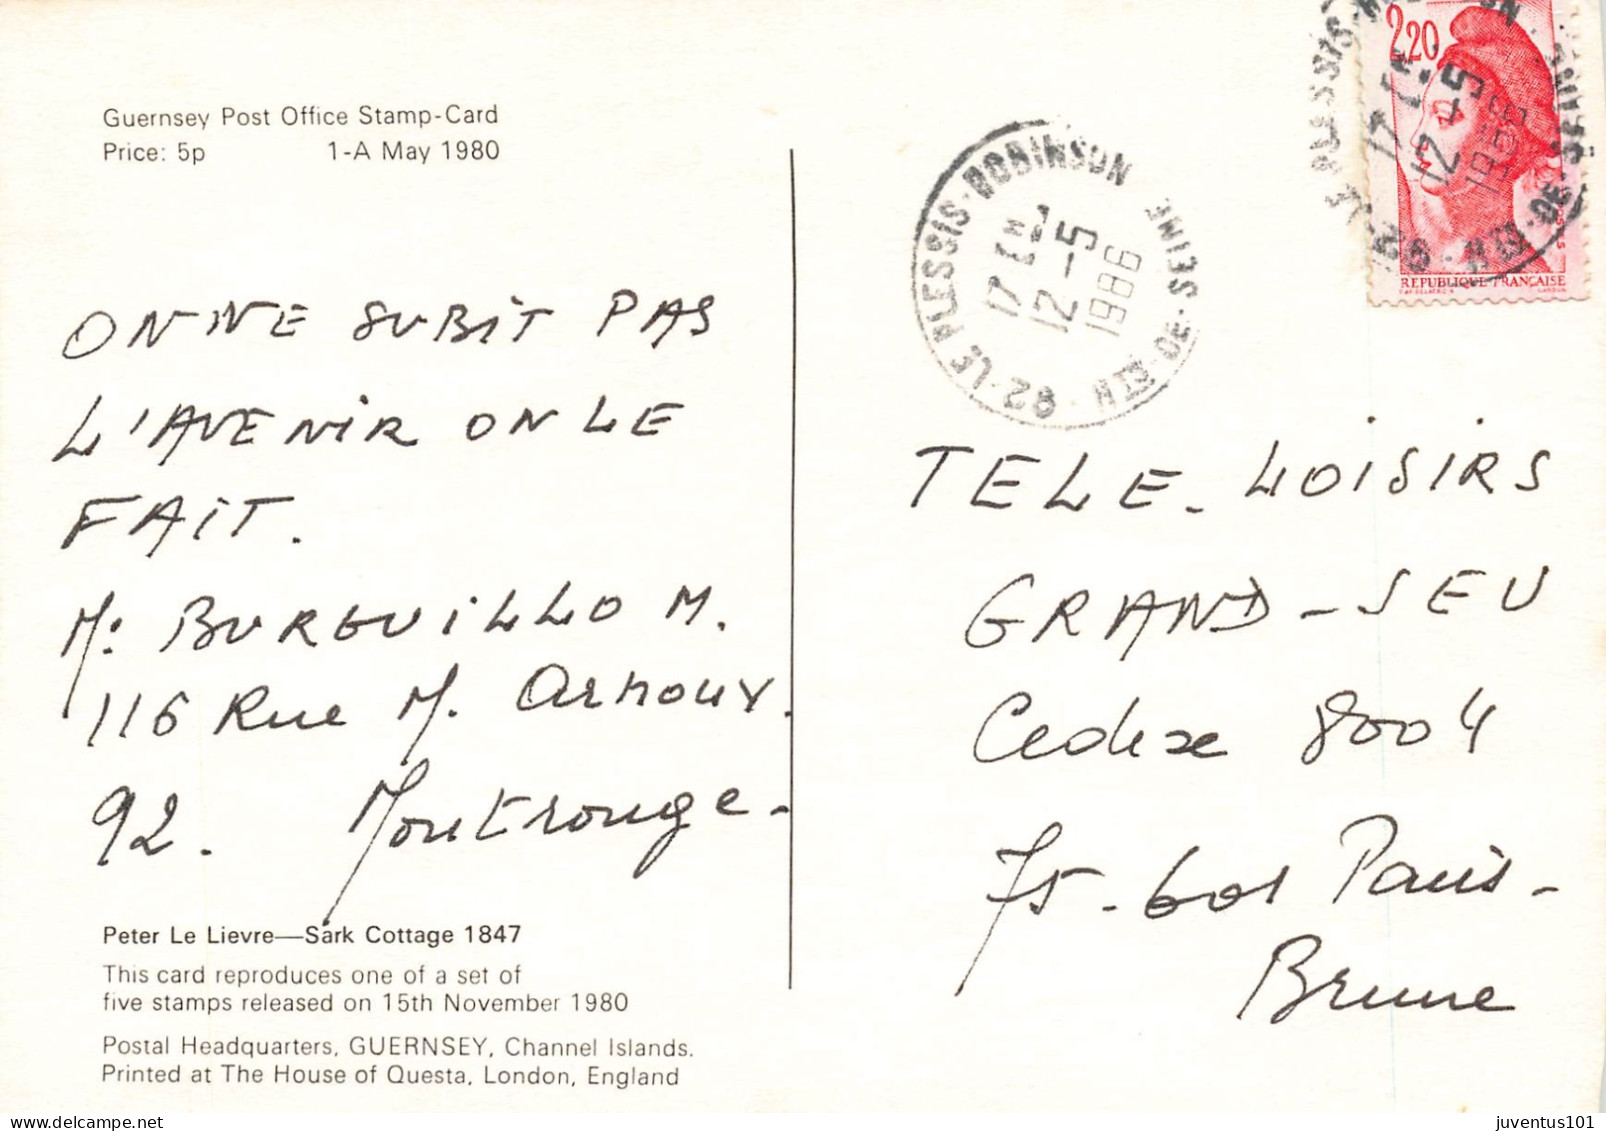 Guernsey Post Office Stamp-Card
Price: 5p 1-A May 1980
ON NE SUBIT PAS
L'AVENIR ON LE
FAIT.
M: BURGUILLO M.
116 Rue M. Arnoux.
92. Montrouge.
Peter Le Lievre—Sark Cottage 1847
This card reproduces one of a set of
five stamps released on 15th November 1980
Postal Headquarters, GUERNSEY, Channel Islands.
Printed at The House of Questa, London, England
92·LE PLESSIS-ROBINSON
17 H
12-5
1986
HTS-DE-SEINE
2,20
17 H
12-5
1986
RÉPUBLIQUE FRANÇAISE
TELE-LOISIRS
GRAND-JEU
Cedex 8004
75-601 Paris-
Brune
juventus101